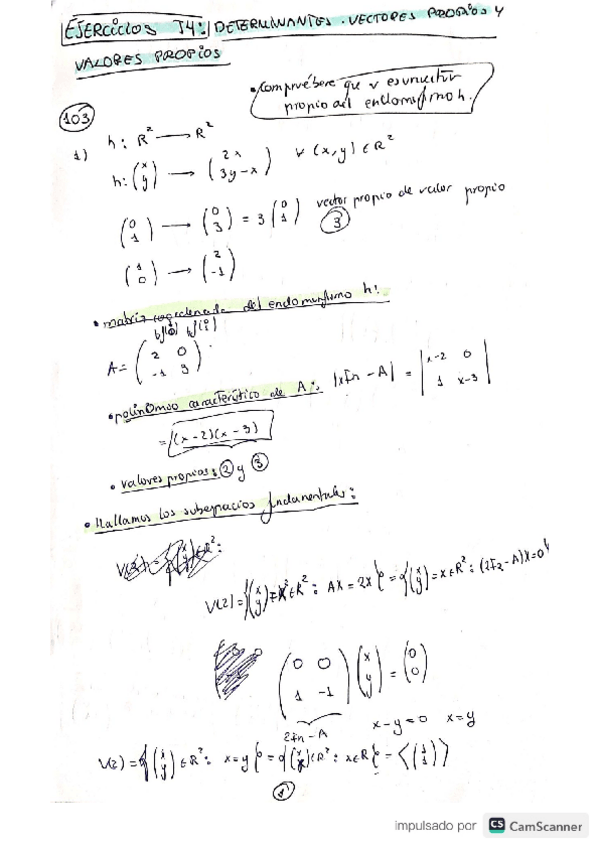 EJERCICIOS T4: DETERMINANTES. VECTORES PROPIOS Y
VALORES PROPIOS
• Compruébese que v es un vector
propio del endomorfismo h.
103
1) h: R² → R²
h: (x y) → (2x 3y-x) ∀ (x,y) ∈ R²
(0 1) → (0 3) = 3 (0 1) vector propio de valor propio
3
(1 0) → (2 -1)
• matriz coordenada del endomorfismo h:
A = (2 0 -1 3)
• polinomio característico de A: |xIn - A| = |x-2 0 1 x-3|
= (x-2)(x-3)
• valores propios: 2 y 3
• Hallamos los subespacios fundamentales:
V(2) = {(x y) ∈ R²: AX = 2X} = {(x y) = x ∈ R²: (2I2-A)X=0}
(0 0 1 -1) (x y) = (0 0)
2In - A
x-y=0 x=y
V(2) = {(x y) ∈ R²: x=y} = {(x x) ∈ R²: x∈R} = <(1 1)>
1
impulsado por CS CamScanner